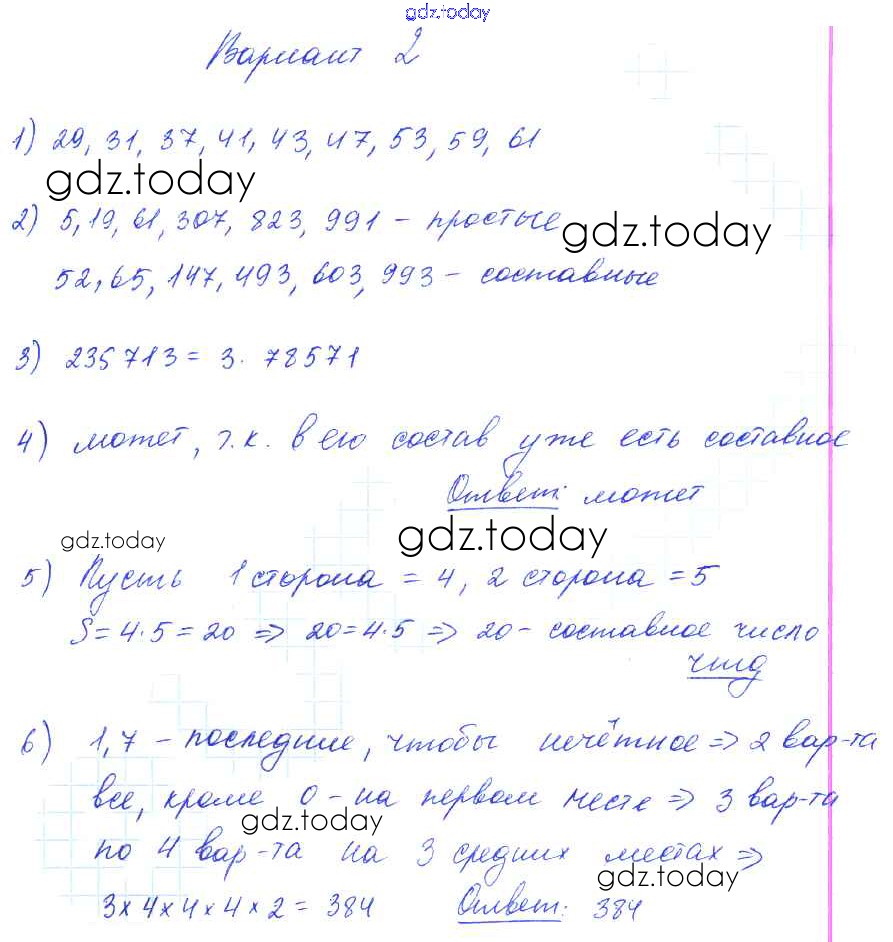 gdz.today
Вариант 2
1) 29, 31, 37, 41, 43, 47, 53, 59, 61
gdz.today
2) 5, 19, 61, 307, 823, 991 – простые
gdz.today
52, 65, 147, 493, 603, 993 – составные
3) 235713 = 3 · 78571
4) может, т.к. в его состав уже есть составное
Ответ: может
gdz.today gdz.today
5) Пусть 1 сторона = 4, 2 сторона = 5
S = 4·5 = 20 => 20 = 4·5 => 20 – составное число
чтд
6) 1,7 – последние, чтобы нечётное => 2 вар-та
все, кроме 0 – на первом месте => 3 вар-та
gdz.today
по 4 вар-та на 3 средних местах =>
gdz.today
3 × 4 × 4 × 4 × 2 = 384 Ответ: 384